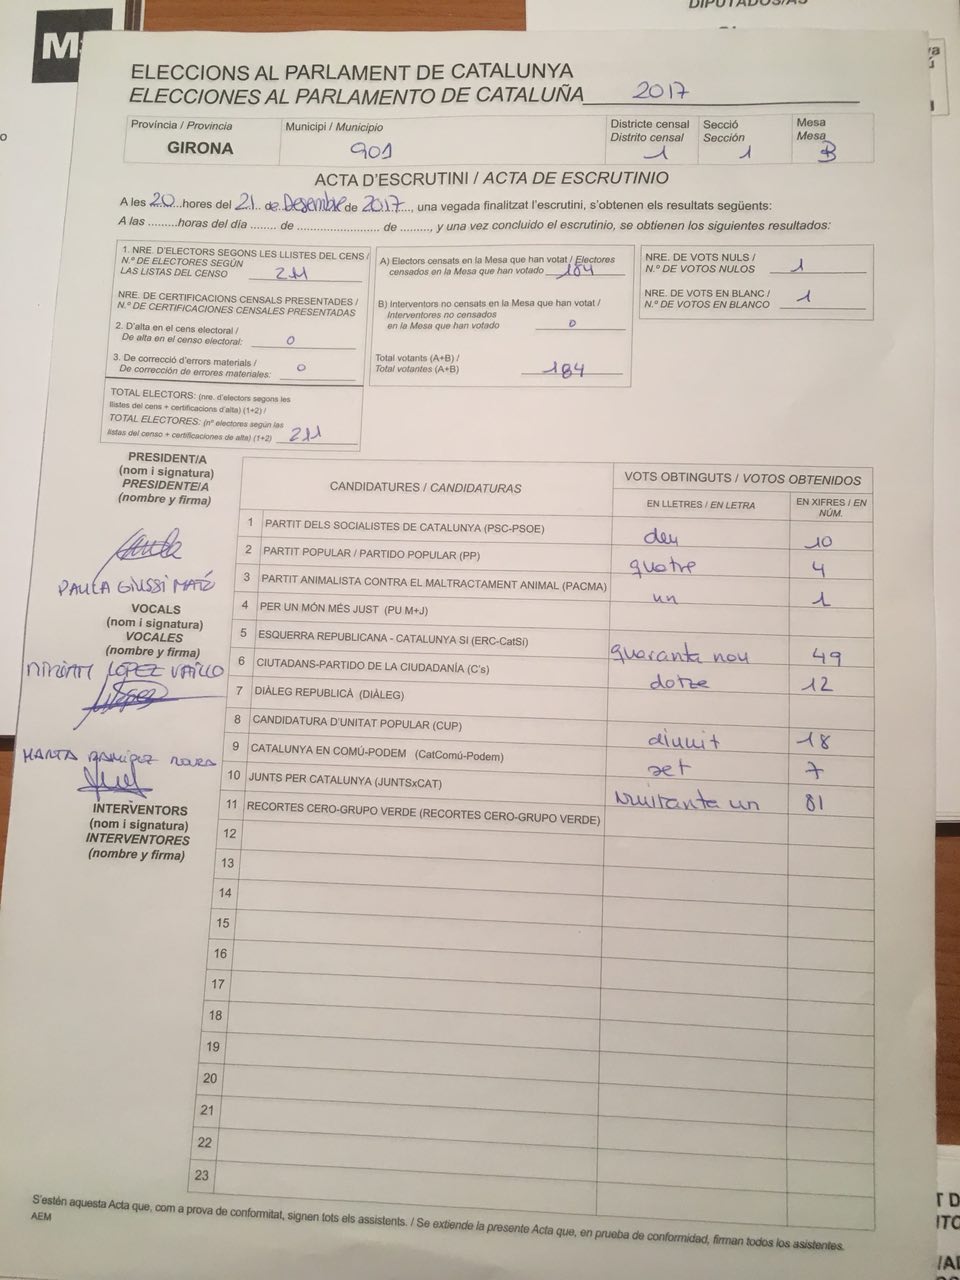 DIPUTADOS/AS
M
ELECCIONS AL PARLAMENT DE CATALUNYA
ELECCIONES AL PARLAMENTO DE CATALUÑA 2017
Província / Provincia
GIRONA
Municipi / Municipio
901
Districte censal
Distrito censal
1
Secció
Sección
1
Mesa
Mesa
B
ACTA D'ESCRUTINI / ACTA DE ESCRUTINIO
A les 20 hores del 21 de Desembre de 2017, una vegada finalitzat l'escrutini, s'obtenen els resultats següents:
A las ......... horas del día ........ de ........................ de ........., y una vez concluido el escrutinio, se obtienen los siguientes resultados:
1. NRE. D'ELECTORS SEGONS LES LLISTES DEL CENS /
N.º DE ELECTORES SEGÚN
LAS LISTAS DEL CENSO 211
NRE. DE CERTIFICACIONS CENSALS PRESENTADES /
N.º DE CERTIFICACIONES CENSALES PRESENTADAS
2. D'alta en el cens electoral /
De alta en el censo electoral: 0
3. De correcció d'errors materials /
De corrección de errores materiales: 0
TOTAL ELECTORS: (nre. d'electors segons les
llistes del cens + certificacions d'alta) (1+2) /
TOTAL ELECTORES: (nº electores según las
listas del censo + certificaciones de alta) (1+2) 211
A) Electors censats en la Mesa que han votat / Electores
censados en la Mesa que han votado 184
B) Interventors no censats en la Mesa que han votat /
Interventores no censados
en la Mesa que han votado 0
Total votants (A+B) /
Total votantes (A+B) 184
NRE. DE VOTS NULS /
N.º DE VOTOS NULOS 1
NRE. DE VOTS EN BLANC /
N.º DE VOTOS EN BLANCO 1
PRESIDENT/A
(nom i signatura)
PRESIDENTE/A
(nombre y firma)
PAULA GIUSSI MATÓ
VOCALS
(nom i signatura)
VOCALES
(nombre y firma)
MIRIAM LÓPEZ VAÍLLO
MARTA RAMÍREZ ROURA
INTERVENTORS
(nom i signatura)
INTERVENTORES
(nombre y firma)
CANDIDATURES / CANDIDATURAS
VOTS OBTINGUTS / VOTOS OBTENIDOS
EN LLETRES / EN LETRA
EN XIFRES / EN
NÚM.
1 PARTIT DELS SOCIALISTES DE CATALUNYA (PSC-PSOE) deu 10
2 PARTIT POPULAR / PARTIDO POPULAR (PP) quatre 4
3 PARTIT ANIMALISTA CONTRA EL MALTRACTAMENT ANIMAL (PACMA) un 1
4 PER UN MÓN MÉS JUST (PU M+J)
5 ESQUERRA REPUBLICANA - CATALUNYA SÍ (ERC-CatSí) quaranta nou 49
6 CIUTADANS-PARTIDO DE LA CIUDADANÍA (C's) dotze 12
7 DIÀLEG REPUBLICÀ (DIÀLEG)
8 CANDIDATURA D'UNITAT POPULAR (CUP) diuuit 18
9 CATALUNYA EN COMÚ-PODEM (CatComú-Podem) set 7
10 JUNTS PER CATALUNYA (JUNTSxCAT) vuitanta un 81
11 RECORTES CERO-GRUPO VERDE (RECORTES CERO-GRUPO VERDE)
12
13
14
15
16
17
18
19
20
21
22
23
S'estén aquesta Acta que, com a prova de conformitat, signen tots els assistents. / Se extiende la presente Acta que, en prueba de conformidad, firman todos los asistentes.
AEM